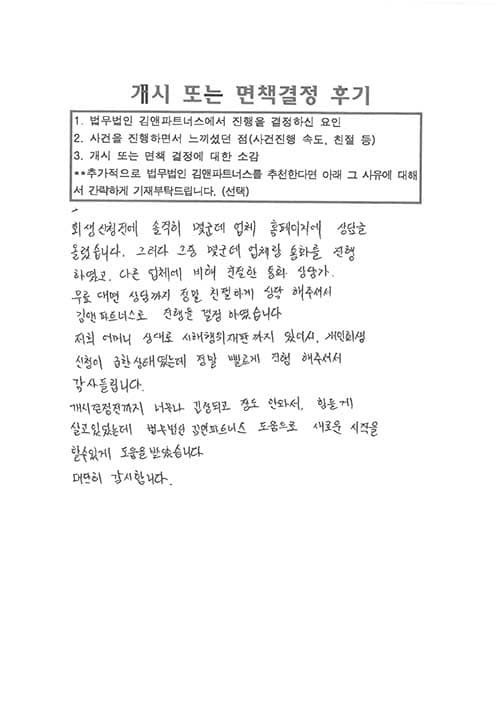 개시 또는 면책결정 후기
1. 법무법인 김앤파트너스에서 진행을 결정하신 요인
2. 사건을 진행하면서 느끼셨던 점(사건진행 속도, 친절 등)
3. 개시 또는 면책 결정에 대한 소감
**추가적으로 법무법인 김앤파트너스를 추천한다면 아래 그 사유에 대해
서 간략하게 기재부탁드립니다. (선택)
회생신청전에 솔직히 몇군데 업체 홈페이지에 상담을
올렸습니다. 그러다 그중 몇군데 업체랑 통화를 진행
하였고, 다른 업체에 비해 친절한 통화 상담가.
무료 대면 상담까지 정말 친절하게 상담 해주셔서
김앤파트너스로 진행을 결정 하였습니다
저희 어머니 상대로 사해행위재판까지 있어서, 개인회생
신청이 급한상태였는데 정말 빠르게 진행 해주셔서
감사드립니다.
개시결정전까지 너무나 긴장되고 잠도 안와서, 힘들게
살고있었는데 법무법인 김앤파트너스 도움으로 새로운 시작을
할수있게 도움을 받았습니다
대단히 감사합니다.